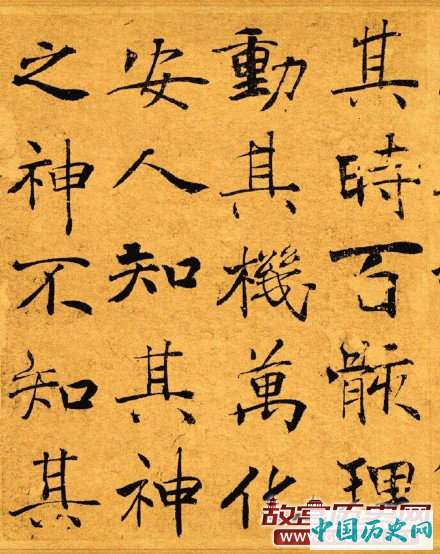 其時百骸理
動其機萬化
安人知其神
之神不知其
中国历史网